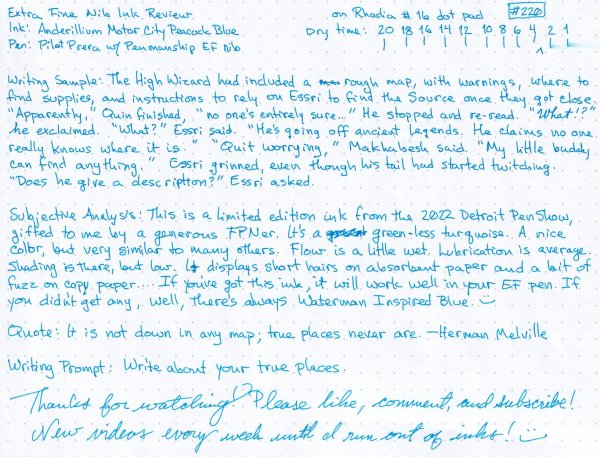 Extra Fine Nib Ink Review on Rhodia #16 dot pad #220
Ink: Anderillium Motor City Peacock Blue Dry time: 20 18 16 14 12 10 8 6 4 2 1
Pen: Pilot Prera w/ Penmanship EF nib
Writing Sample: The High Wizard had included a rough map, with warnings, where to
find supplies, and instructions to rely on Essri to find the Source once they got close.
"Apparently," Quin finished, "no one's entirely sure..." He stopped and re-read. "What!?"
he exclaimed. "What?" Essri said. "He's going off ancient legends. He claims no one
really knows where it is." "Quit worrying," Makhabesh said. "My little buddy
can find anything." Essri grinned, even though his tail had started twitching.
"Does he give a description?" Essri asked.
Subjective Analysis: This is a limited edition ink from the 2022 Detroit Pen Show,
gifted to me by a generous FPNer. It's a green-less turquoise. A nice
color, but very similar to many others. Flow is a little wet. Lubrication is average.
Shading is there, but low. It displays short hairs on absorbent paper and a bit of
fuzz on copy paper.... If you've got this ink, it will work well in your EF pen. If
you didn't get any, well, there's always Waterman Inspired Blue.
Quote: It is not down in any map; true places never are. —Herman Melville
Writing Prompt: Write about your true places.
Thanks for watching! Please like, comment, and subscribe!
New videos every week until I run out of inks!